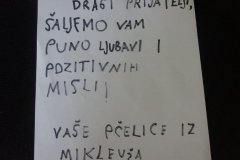 DRAGI PRIJATELJI,
ŠALJEMO VAM
PUNO LJUBAVI I
POZITIVNIH
MISLI!
VAŠE PČELICE IZ
MIKLEUŠA